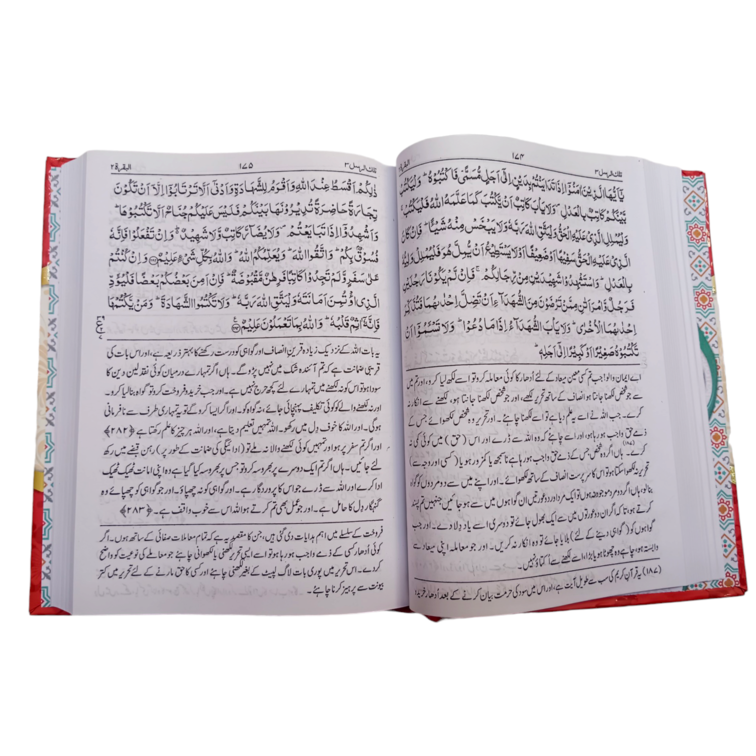 تلك الرسل ٣
١٧٤
يٰۤاَيُّهَا الَّذِيْنَ اٰمَنُوْۤا اِذَا تَدَايَنْتُمْ بِدَيْنٍ اِلٰۤى اَجَلٍ مُّسَمًّى فَاكْتُبُوْهُ ؕ وَلْيَكْتُبْ
بَّيْنَكُمْ كَاتِبٌۢ بِالْعَدْلِ ۪ وَلَا يَاْبَ كَاتِبٌ اَنْ يَّكْتُبَ كَمَا عَلَّمَهُ اللّٰهُ فَلْيَكْتُبْ ۚ
وَلْيُمْلِلِ الَّذِيْ عَلَيْهِ الْحَقُّ وَلْيَتَّقِ اللّٰهَ رَبَّهٗ وَلَا يَبْخَسْ مِنْهُ شَيْـًٔا ؕ فَاِنْ كَانَ
الَّذِيْ عَلَيْهِ الْحَقُّ سَفِيْهًا اَوْ ضَعِيْفًا اَوْ لَا يَسْتَطِيْعُ اَنْ يُّمِلَّ هُوَ فَلْيُمْلِلْ وَلِيُّهٗ
بِالْعَدْلِ ؕ وَاسْتَشْهِدُوْا شَهِيْدَيْنِ مِنْ رِّجَالِكُمْ ۚ فَاِنْ لَّمْ يَكُوْنَا رَجُلَيْنِ
فَرَجُلٌ وَّامْرَاَتٰنِ مِمَّنْ تَرْضَوْنَ مِنَ الشُّهَدَآءِ اَنْ تَضِلَّ اِحْدٰىهُمَا فَتُذَكِّرَ
اِحْدٰىهُمَا الْاُخْرٰى ؕ وَلَا يَاْبَ الشُّهَدَآءُ اِذَا مَا دُعُوْا ؕ وَلَا تَسْـَٔمُوْۤا اَنْ
تَكْتُبُوْهُ صَغِيْرًا اَوْ كَبِيْرًا اِلٰۤى اَجَلِهٖ ؕ
اے ایمان والو! جب تم کسی معین میعاد کے لئے ادھار کا کوئی معاملہ کرو تو اسے لکھ لیا کرو، اور تم میں
سے جو شخص لکھنا جانتا ہو انصاف کے ساتھ تحریر لکھے، اور جو شخص لکھنا جانتا ہو، لکھنے سے انکار نہ
کرے۔ جب اللہ نے اسے یہ علم دیا ہے تو اسے لکھنا چاہئے۔ اور تحریر وہ شخص لکھوائے جس کے
ذمے حق واجب ہو رہا ہو، اور اسے چاہئے کہ وہ اللہ سے ڈرے اور اس (حق) میں کوئی کمی نہ
کرے۔ ہاں اگر وہ شخص جس کے ذمے حق واجب ہو رہا ہے ناسمجھ یا کمزور ہو یا (کسی اور وجہ سے)
تحریر نہ لکھوا سکتا ہو تو اس کا سرپرست انصاف کے ساتھ لکھوائے۔ اور اپنے میں سے دو مردوں کو گواہ
بنا لو، ہاں اگر دو مرد موجود نہ ہوں تو ایک مرد اور دو عورتیں ان گواہوں میں سے ہو جائیں جنہیں تم پسند
کرتے ہو، تاکہ اگر ان دو عورتوں میں سے ایک بھول جائے تو دوسری اسے یاد دلا دے۔ اور جب
گواہوں کو (گواہی دینے کے لئے) بلایا جائے تو وہ انکار نہ کریں۔ اور جو معاملہ اپنی میعاد سے
وابستہ ہو، چاہے وہ چھوٹا ہو یا بڑا، اسے لکھنے سے اکتاؤ نہیں۔
(۱۸۷) یہ قرآن کریم کی سب سے طویل آیت ہے، اور اس میں سود کی حرمت بیان کرنے کے بعد اُدھار خرید و
تلك الرسل ٣
١٧٥
البقرة ٢
ذٰلِكُمْ اَقْسَطُ عِنْدَ اللّٰهِ وَاَقْوَمُ لِلشَّهَادَةِ وَاَدْنٰۤى اَلَّا تَرْتَابُوْۤا اِلَّاۤ اَنْ تَكُوْنَ
تِجَارَةً حَاضِرَةً تُدِيْرُوْنَهَا بَيْنَكُمْ فَلَيْسَ عَلَيْكُمْ جُنَاحٌ اَلَّا تَكْتُبُوْهَا ؕ
وَاَشْهِدُوْۤا اِذَا تَبَايَعْتُمْ ۪ وَلَا يُضَآرَّ كَاتِبٌ وَّلَا شَهِيْدٌ ؕ۬ وَاِنْ تَفْعَلُوْا فَاِنَّهٗ
فُسُوْقٌۢ بِكُمْ ؕ وَاتَّقُوا اللّٰهَ ؕ وَيُعَلِّمُكُمُ اللّٰهُ ؕ وَاللّٰهُ بِكُلِّ شَيْءٍ عَلِيْمٌ ۝ وَاِنْ كُنْتُمْ
عَلٰى سَفَرٍ وَّلَمْ تَجِدُوْا كَاتِبًا فَرِهٰنٌ مَّقْبُوْضَةٌ ؕ فَاِنْ اَمِنَ بَعْضُكُمْ بَعْضًا فَلْيُؤَدِّ
الَّذِي اؤْتُمِنَ اَمَانَتَهٗ وَلْيَتَّقِ اللّٰهَ رَبَّهٗ ؕ وَلَا تَكْتُمُوا الشَّهَادَةَ ؕ وَمَنْ يَّكْتُمْهَا
فَاِنَّهٗۤ اٰثِمٌ قَلْبُهٗ ؕ وَاللّٰهُ بِمَا تَعْمَلُوْنَ عَلِيْمٌ ۝
یہ بات اللہ کے نزدیک زیادہ قرین انصاف اور گواہی کو درست رکھنے کا بہتر ذریعہ ہے، اور اس بات کی
قریبی ضمانت ہے کہ تم آئندہ شک میں نہیں پڑو گے۔ ہاں اگر تمہارے درمیان کوئی نقد لین دین کا
سودا ہو تو اس کو نہ لکھنے میں تمہارے لئے کچھ حرج نہیں ہے۔ اور جب خرید و فروخت کرو تو گواہ بنا لیا کرو۔
اور نہ لکھنے والے کو کوئی تکلیف پہنچائی جائے، نہ گواہ کو۔ اور اگر ایسا کرو گے تو یہ تمہاری طرف سے نافرمانی
ہوگی۔ اور اللہ کا خوف دل میں رکھو۔ اللہ تمہیں تعلیم دیتا ہے، اور اللہ ہر چیز کا علم رکھتا ہے ﴿۲۸۲﴾
اور اگر تم سفر پر ہو اور تمہیں کوئی لکھنے والا نہ ملے تو (ادائیگی کی ضمانت کے طور پر) رہن قبضے میں رکھ
لئے جائیں۔ ہاں اگر تم ایک دوسرے پر بھروسہ کرو تو جس پر بھروسہ کیا گیا ہے وہ اپنی امانت ٹھیک ٹھیک
ادا کرے اور اللہ سے ڈرے جو اس کا پروردگار ہے۔ اور گواہی کو نہ چھپاؤ۔ اور جو گواہی کو چھپائے وہ
گنہگار دل کا حامل ہے۔ اور جو عمل بھی تم کرتے ہو اللہ اس سے خوب واقف ہے۔ ﴿۲۸۳﴾
فروخت کے سلسلے میں اہم ہدایات دی گئی ہیں، جن کا مقصد یہ ہے کہ تمام معاملات صفائی کے ساتھ ہوں۔ اگر
کوئی اُدھار کسی کے ذمے واجب ہو رہا ہو تو اسے ایسی تحریر لکھنی یا لکھوانی چاہئے جو معاملے کی نوعیت کو واضح
کر دے۔ اس تحریر میں پوری بات لاگ لپیٹ کے بغیر لکھنی چاہئے اور کسی کا حق مارنے کے لئے تحریر میں کتر
بیونت سے پرہیز کرنا چاہئے۔